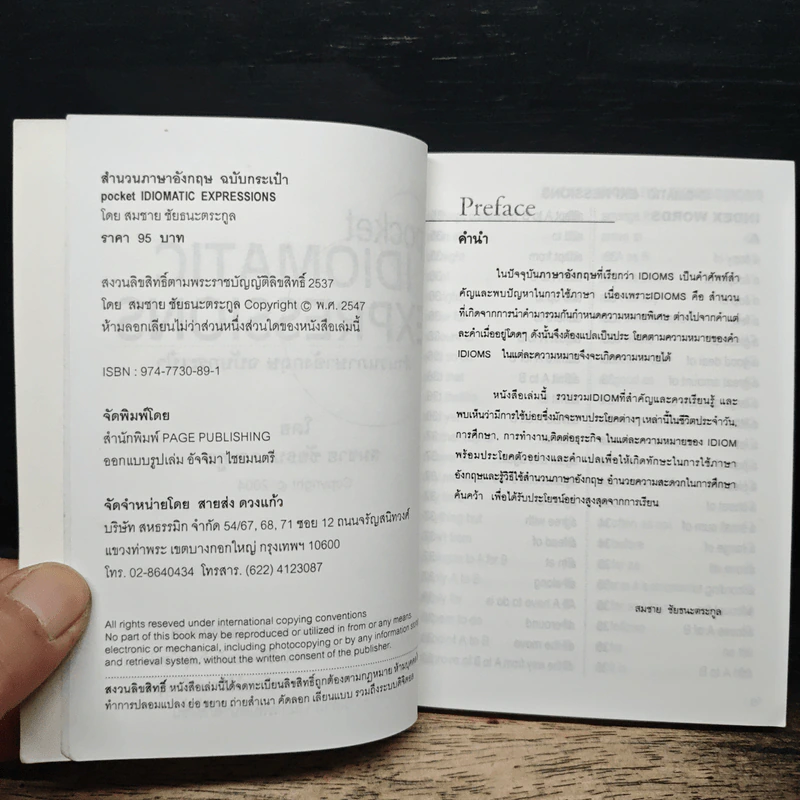 สำนวนภาษาอังกฤษ ฉบับกระเป๋า
pocket IDIOMATIC EXPRESSIONS
โดย สมชาย ชัยธนะตระกูล
ราคา 95 บาท
สงวนลิขสิทธิ์ตามพระราชบัญญัติลิขสิทธิ์ 2537
โดย สมชาย ชัยธนะตระกูล Copyright © พ.ศ. 2547
ห้ามลอกเลียนไม่ว่าส่วนหนึ่งส่วนใดของหนังสือเล่มนี้
ISBN : 974-7730-89-1
จัดพิมพ์โดย
สำนักพิมพ์ PAGE PUBLISHING
ออกแบบรูปเล่ม อัจจิมา ไชยมนตรี
จัดจำหน่ายโดย สายส่ง ดวงแก้ว
บริษัท สหธรรมิก จำกัด 54/67, 68, 71 ซอย 12 ถนนจรัญสนิทวงศ์
แขวงท่าพระ เขตบางกอกใหญ่ กรุงเทพฯ 10600
โทร. 02-8640434 โทรสาร. (622) 4123087
All rights reseved under international copying conventions
No part of this book may be reproduced or utilized in from or any means.
electronic or mechanical, including photocopying or by any information
and retrieval system, without the written consent of the publisher.
สงวนลิขสิทธิ์ หนังสือเล่มนี้ได้จดทะเบียนลิขสิทธิ์ถูกต้องตามกฎหมาย
ทำการปลอมแปลง ย่อ ขยาย ถ่ายสำเนา คัดลอก เลียนแบบ รวมถึงระบบดิจิตอล
Preface
คำนำ
ในปัจจุบันภาษาอังกฤษที่เรียกว่า IDIOMS เป็นคำศัพท์สำ
คัญและพบปัญหาในการใช้ภาษา เนื่องเพราะIDIOMS คือ สำนวน
ที่เกิดจากการนำคำมารวมกันกำหนดความหมายพิเศษ ต่างไปจากคำแต่
ละคำเมื่ออยู่โดดๆ ดังนั้นจึงต้องแปลเป็นประ โยคตามความหมายของคำ
IDIOMS ในแต่ละความหมายจึงจะเกิดความหมายได้
หนังสือเล่มนี้ รวบรวมIDIOMที่สำคัญและควรเรียนรู้ และ
พบเห็นว่ามีการใช้บ่อยซึ่งมักจะพบประโยคต่างๆ เหล่านี้ในชีวิตประจำวัน,
การศึกษา, การทำงาน,ติดต่อธุระกิจ ในแต่ละความหมายของ IDIOM
พร้อมประโยคตัวอย่างและคำแปลเพื่อให้เกิดทักษะในการใช้ภาษา
อังกฤษและรู้วิธีใช้สำนวนภาษาอังกฤษ อำนวยความสะดวกในการศึกษา
ค้นคว้า เพื่อได้รับประโยชน์อย่างสูงสุดจากการเรียน
สมชาย ชัยธนะตระกูล